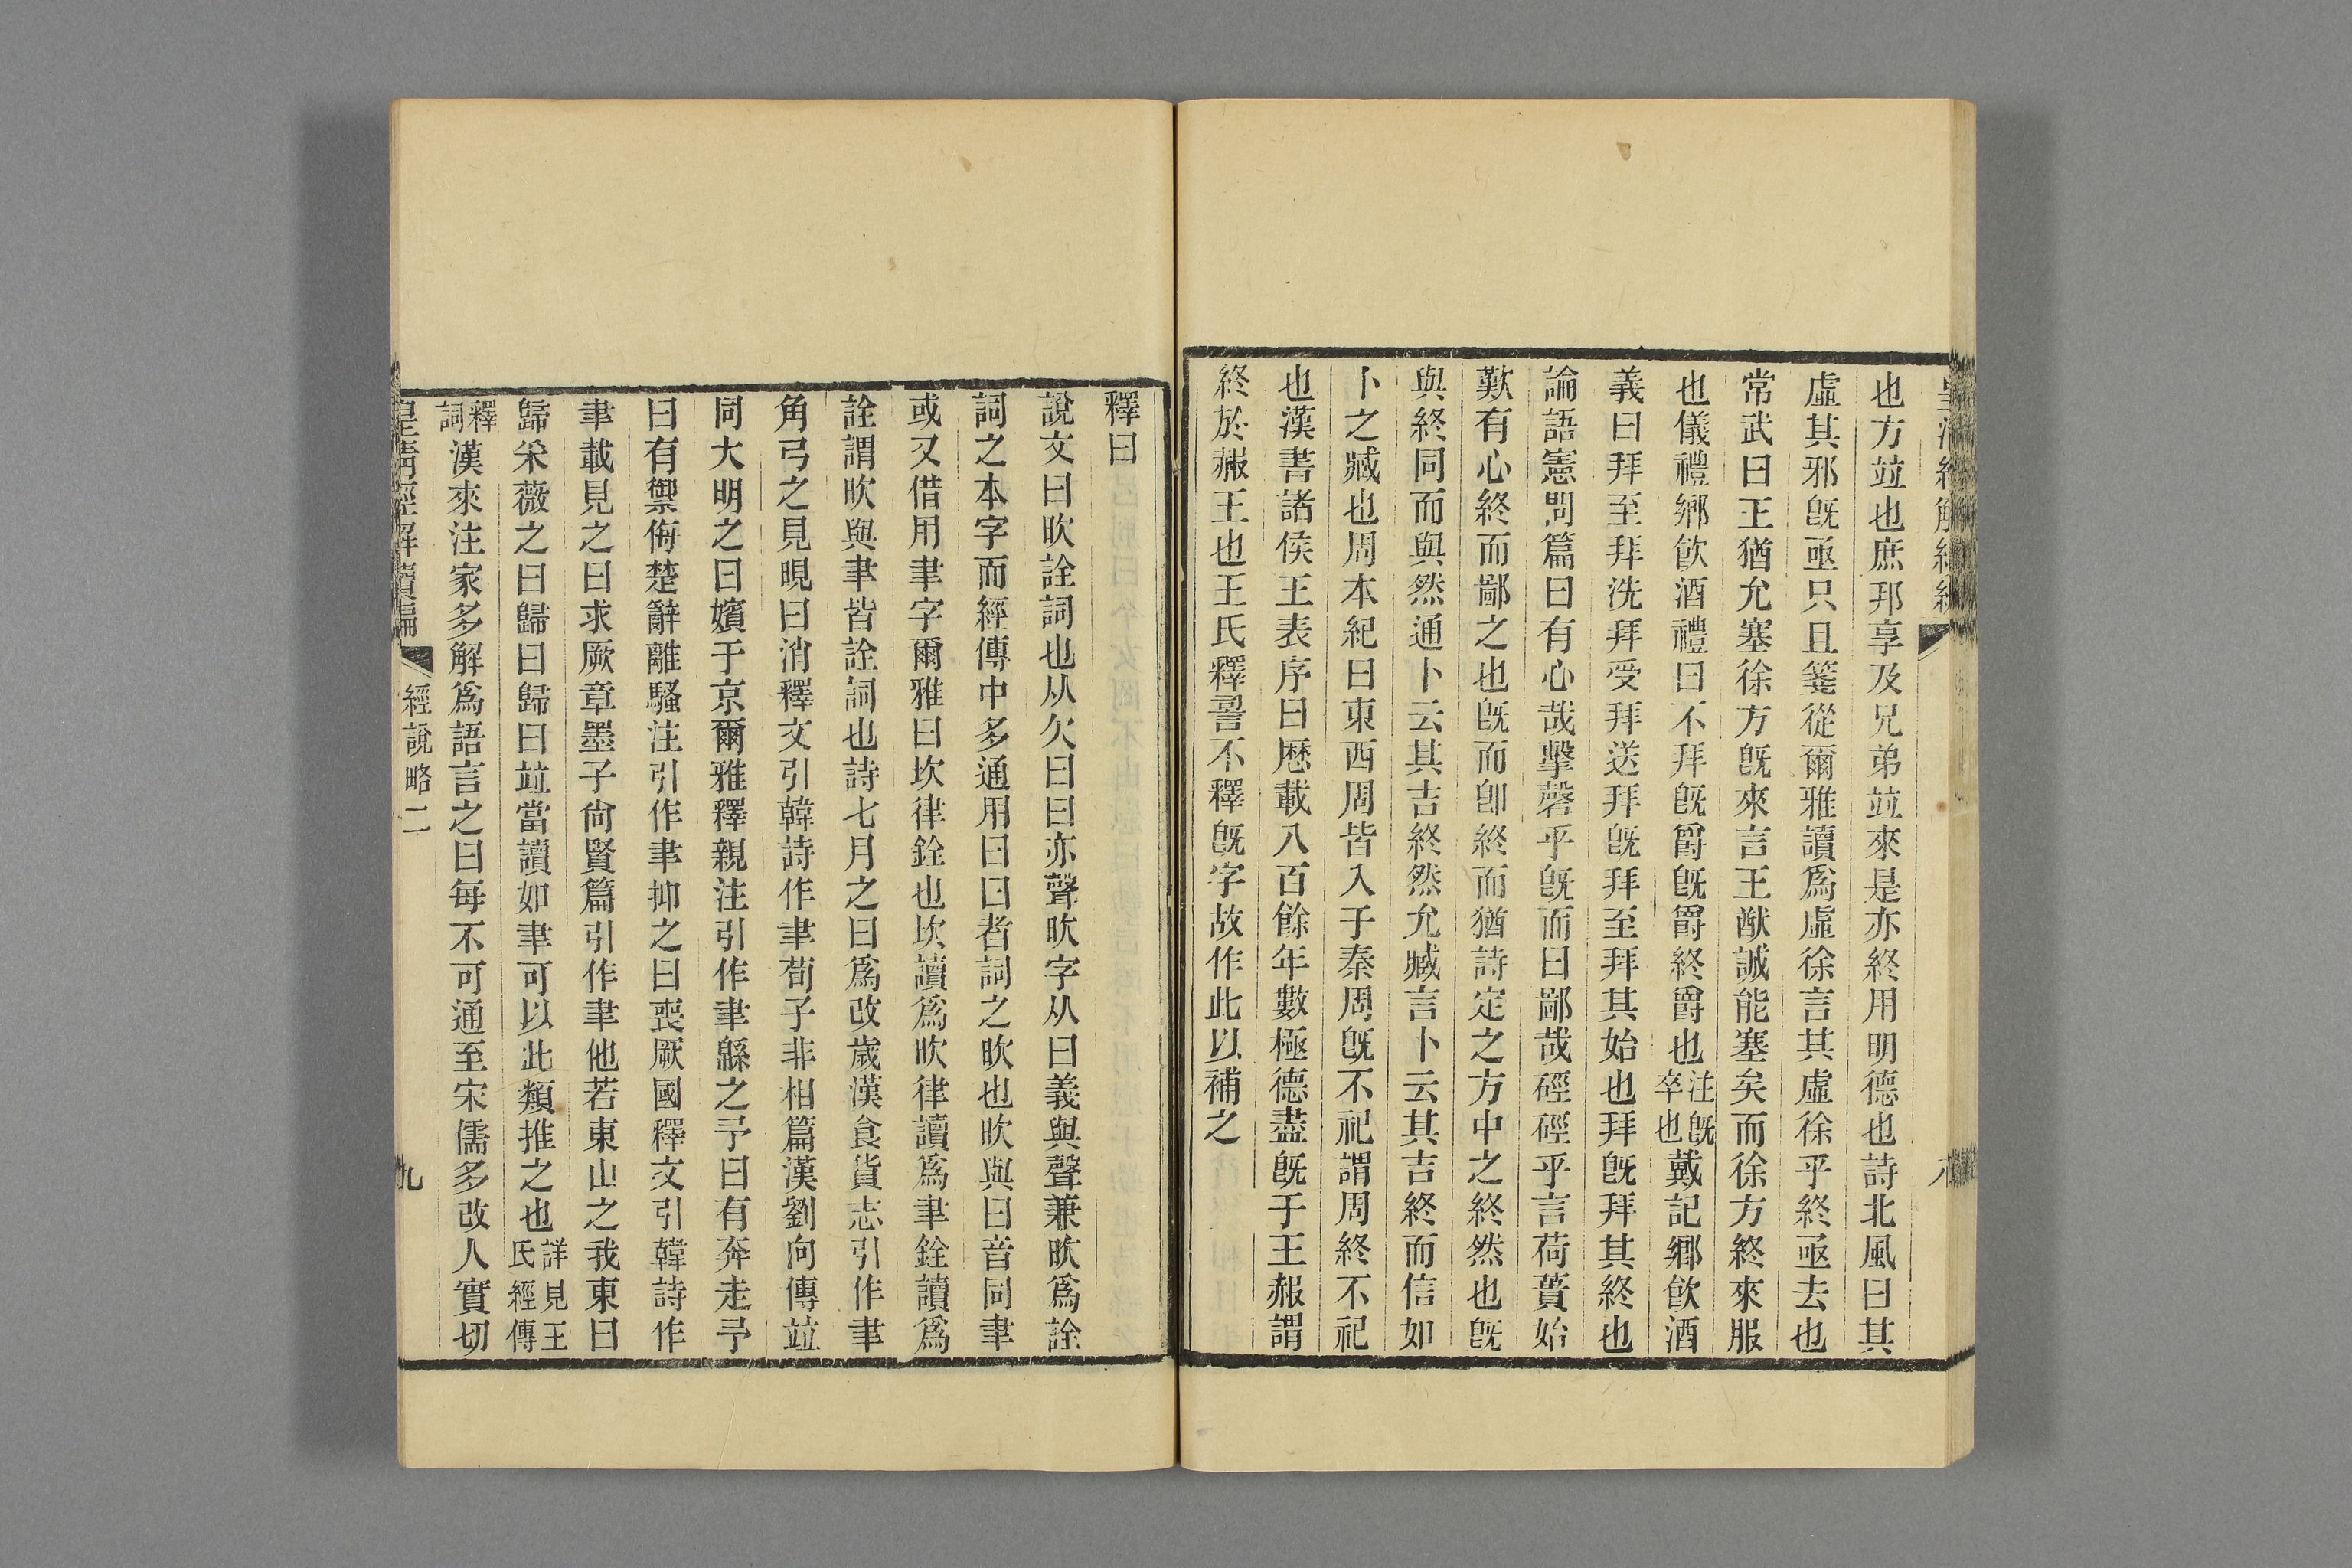 也方竝也庶邦享及兄弟竝來是亦終用明德也詩北風曰其
虛其邪旣亟只且箋從爾雅讀爲虛徐言其虛徐乎終亟去也
常武曰王猶允塞徐方旣來言王猷誠能塞矣而徐方終來服
也儀禮鄉飮酒禮曰不拜旣爵旣爵終爵也注旣卒也戴記鄉飮酒
義曰拜至拜洗拜受拜送拜旣拜至拜其始也拜旣拜其終也
論語憲問篇曰有心哉擊磬乎旣而曰鄙哉硜硜乎言荷蕢始
歎有心終而鄙之也旣而卽終而猶詩定之方中之終然也旣
與終同而與然通卜云其吉終然允臧言卜云其吉終而信如
卜之臧也周本紀曰東西周皆入于秦周旣不祀謂周終不祀
也漢書諸侯王表序曰歷載八百餘年數極德盡旣于王赧謂
終於赧王也王氏釋詞不釋旣字故作此以補之
釋曰
說文曰欥詮詞也从欠曰曰亦聲欥字从曰義與聲兼欥爲詮
詞之本字而經傳中多通用曰曰者詞之欥也欥與曰音同聿
或又借用聿字爾雅曰坎律銓也坎讀爲欥律讀爲聿銓讀爲
詮謂欥與聿皆詮詞也詩七月之曰爲改歲漢食貨志引作聿
角弓之見晛曰消釋文引韓詩作聿荀子非相篇漢劉向傳竝
同大明之曰嬪于京爾雅釋親注引作聿緜之予曰有奔走予
曰有禦侮楚辭離騷注引作聿抑之曰喪厥國釋文引韓詩作
聿載見之曰求厥章墨子尙賢篇引作聿他若東山之我東曰
歸采薇之曰歸曰歸曰竝當讀如聿可以此類推之也詳見王氏經傳
釋詞漢來注家多解爲語言之曰每不可通至宋儒多改人實切
皇淸經解續編
經說略二
九